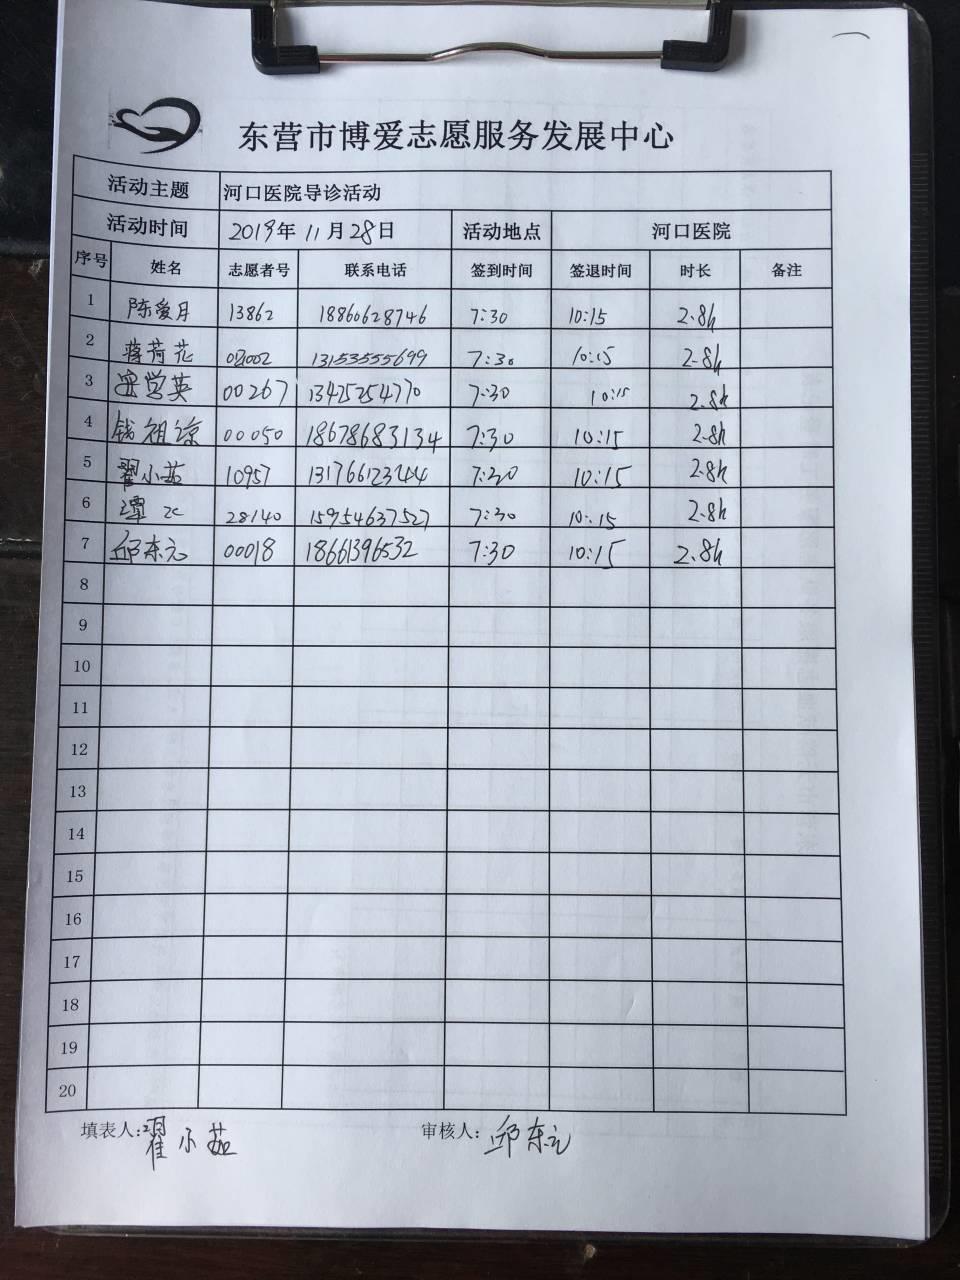 东营市博爱志愿服务发展中心
活动主题 河口医院导诊活动
活动时间 2019年 11月28日 活动地点 河口医院
序号 姓名 志愿者号 联系电话 签到时间 签退时间 时长 备注
1 陈爱月 13862 18860628746 7:30 10:15 2.8h
2 蒋荷花 02002 13153555699 7:30 10:15 2.8h
3 学英 00267 13425254770 7:30 10:15 2.8h
4 钱祖琼 00050 18678683134 7:30 10:15 2.8h
5 翟小茹 10957 13176612344 7:30 10:15 2.8h
6 谭 28140 15954637527 7:30 10:15 2.8h
7 邱东元 00018 18661396532 7:30 10:15 2.8h
8
9
10
11
12
13
14
15
16
17
18
19
20
填表人:翟小茹 审核人:邱东元